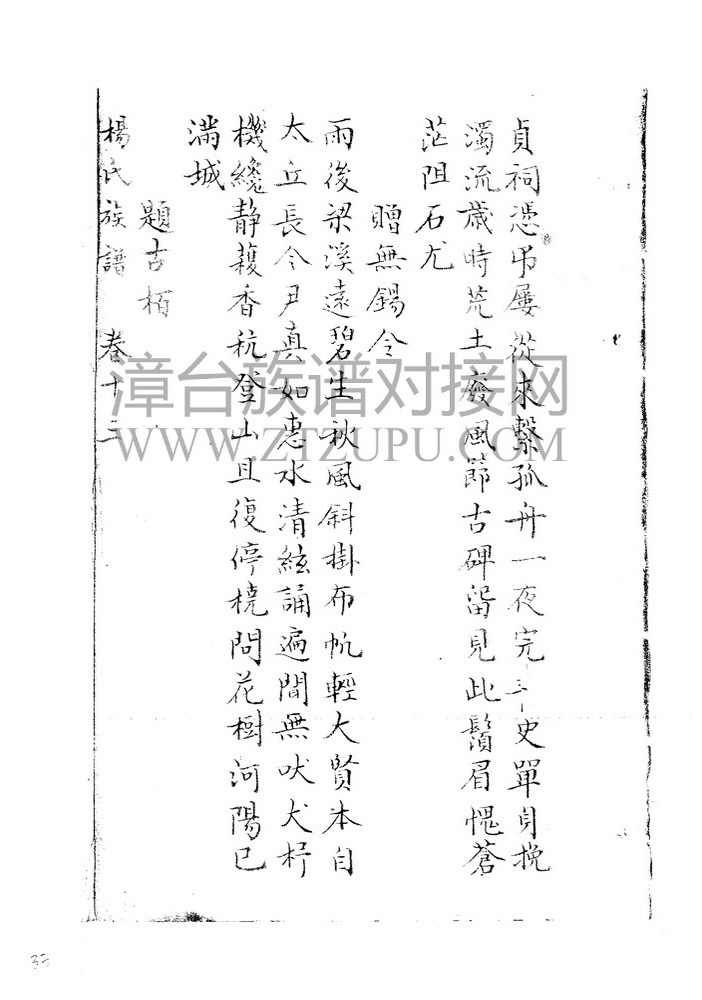 貞祠憑吊屢從來繫孤舟一夜完三史單貞挽
濁流歲時荒土廢風節古碑留見此鬚眉愧蒼
茫阻石尤
贈無錫令
雨後梁溪遠碧生秋風斜掛布帆輕大賢本自
太丘長令尹真如惠水清絃誦遍閭無吠犬杼
機纔静穫香秔登山且復停橈問花樹河陽已
滿城
題古栢
楊氏族譜 卷十三
漳台族谱对接网
WWW.ZTZUPU.COM
33